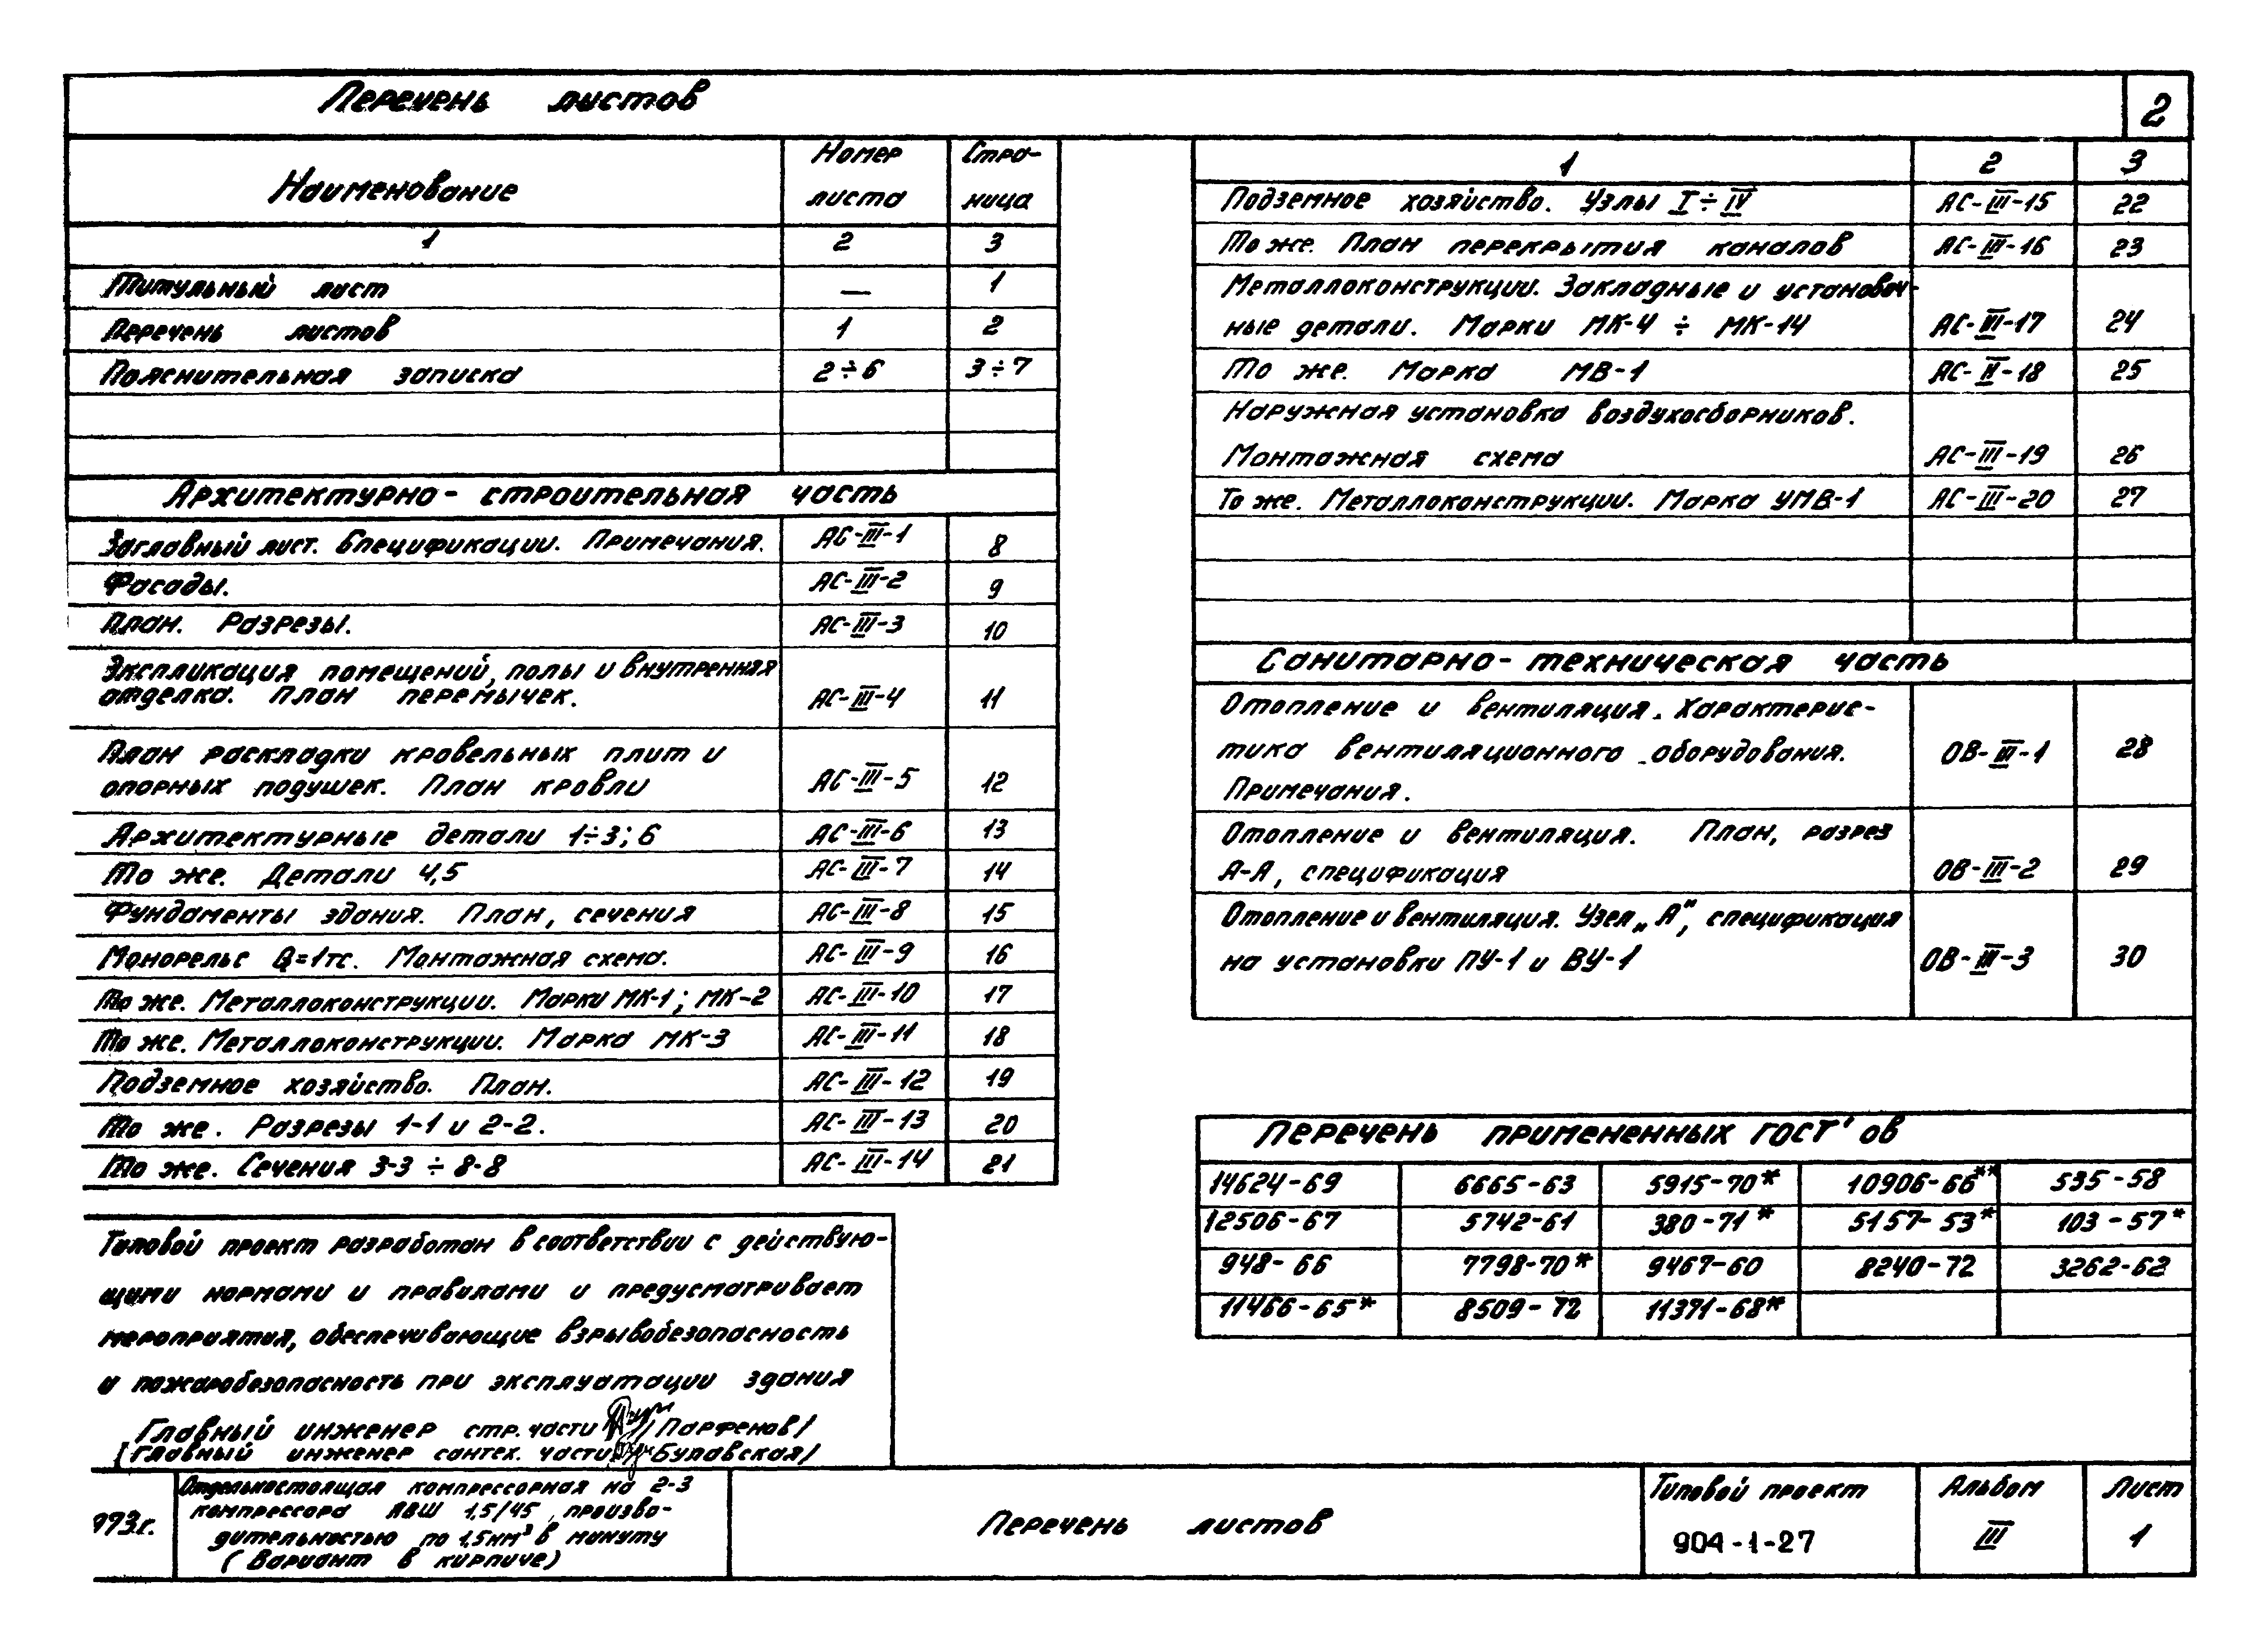 Перечень листов
2
Наименование Номер листа Стра-ница
1 2 3
Титульный лист — 1
Перечень листов 1 2
Пояснительная записка 2÷6 3÷7
Архитектурно-строительная часть
Заглавный лист. Спецификации. Примечания. АС-III-1 8
Фасады. АС-III-2 9
План. Разрезы. АС-III-3 10
Экспликация помещений, полы и внутренняя
отделка. План перемычек. АС-III-4 11
План раскладки кровельных плит и
опорных подушек. План кровли АС-III-5 12
Архитектурные детали 1÷3; 6 АС-III-6 13
То же. Детали 4,5 АС-III-7 14
Фундаменты здания. План, сечения АС-III-8 15
Монорельс Q=1тс. Монтажная схема. АС-III-9 16
То же. Металлоконструкции. Марки МК-1; МК-2 АС-III-10 17
То же. Металлоконструкции. Марка МК-3 АС-III-11 18
Подземное хозяйство. План. АС-III-12 19
То же. Разрезы 1-1 и 2-2. АС-III-13 20
То же. Сечения 3-3 ÷ 8-8 АС-III-14 21
1 2 3
Подземное хозяйство. Узлы I÷IV АС-III-15 22
То же. План перекрытия каналов АС-III-16 23
Металлоконструкции. Закладные и установоч-
ные детали. Марки МК-4 ÷ МК-14 АС-III-17 24
То же. Марка МВ-1 АС-II-18 25
Наружная установка воздухосборников.
Монтажная схема АС-III-19 26
То же. Металлоконструкции. Марка УМВ-1 АС-III-20 27
Санитарно-техническая часть
Отопление и вентиляция. Характерис-
тика вентиляционного оборудования. ОВ-III-1 28
Примечания.
Отопление и вентиляция. План, разрез
А-А, спецификация ОВ-III-2 29
Отопление и вентиляция. Узел „А", спецификация
на установки ПУ-1 и ВУ-1 ОВ-III-3 30
Перечень примененных ГОСТ'ов
14624-69 6665-63 5915-70* 10906-66** 535-58
12506-67 5742-61 380-71* 5157-53* 103-57*
948-66 7798-70* 9467-60 8240-72 3262-62
11466-65* 8509-72 11371-68*
Типовой проект разработан в соответствии с действую-
щими нормами и правилами и предусматривает
мероприятия, обеспечивающие взрывобезопасность
и пожаробезопасность при эксплуатации здания
Главный инженер стр. части /Парфенов/
Главный инженер сантех. части /Булавская/
973г.
Отдельностоящая компрессорная на 2-3
компрессора АВШ 1,5/45, произво-
дительностью по 1,5нм³ в минуту
(Вариант в кирпиче)
Перечень листов
Типовой проект
904-1-27
Альбом
III
Лист
1